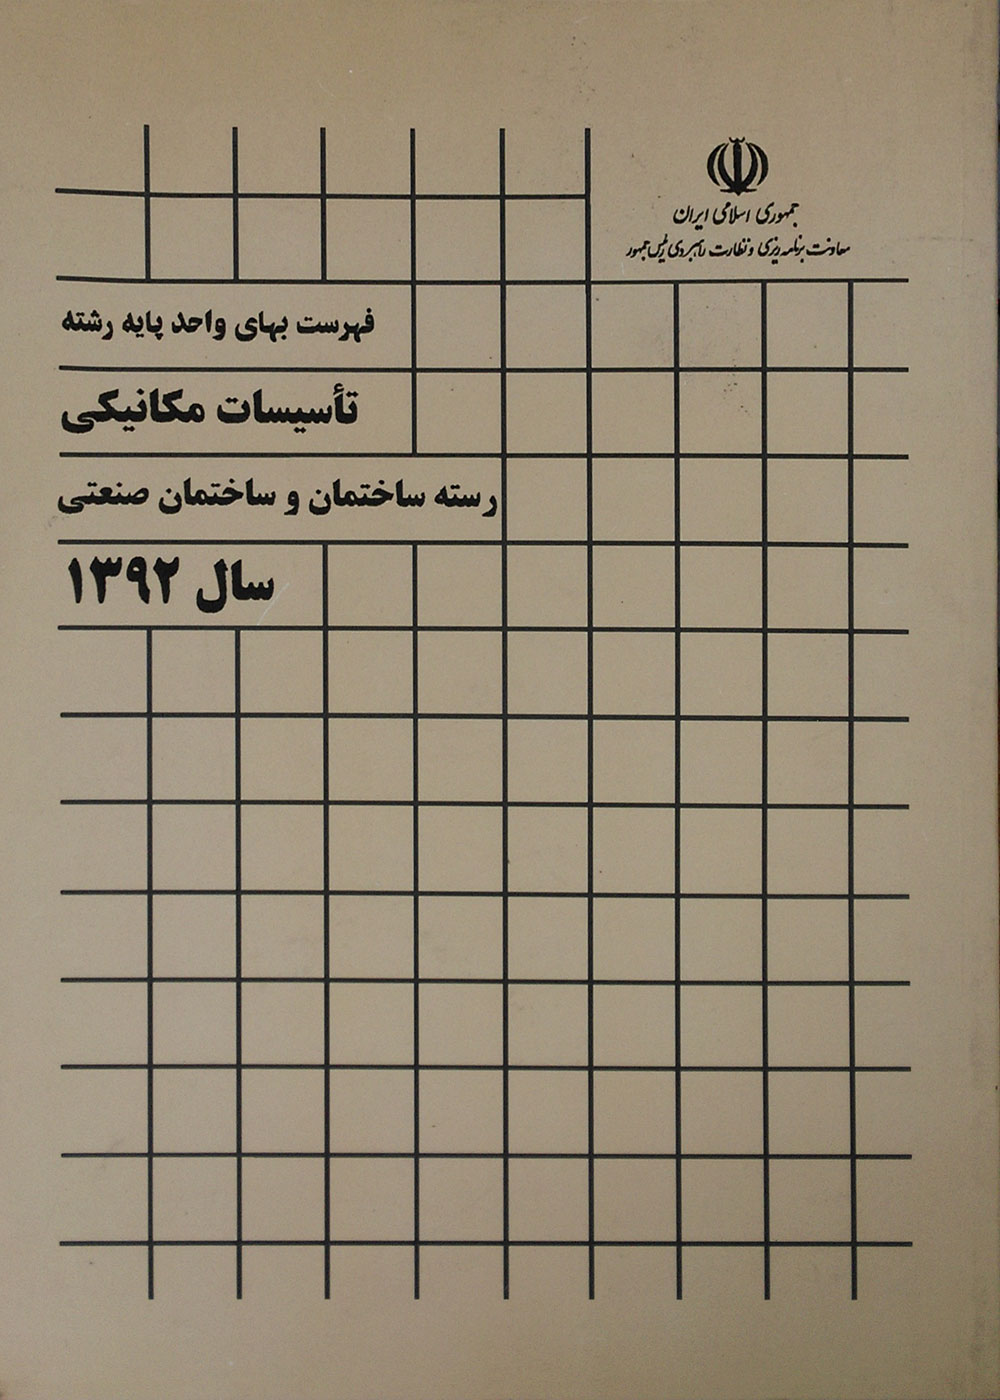 جمهوری اسلامی ایران
معاونت برنامه‌ریزی و نظارت راهبردی رئیس جمهور
فهرست بهای واحد پایه رشته
تأسیسات مکانیکی
رسته ساختمان و ساختمان صنعتی
سال ۱۳۹۲